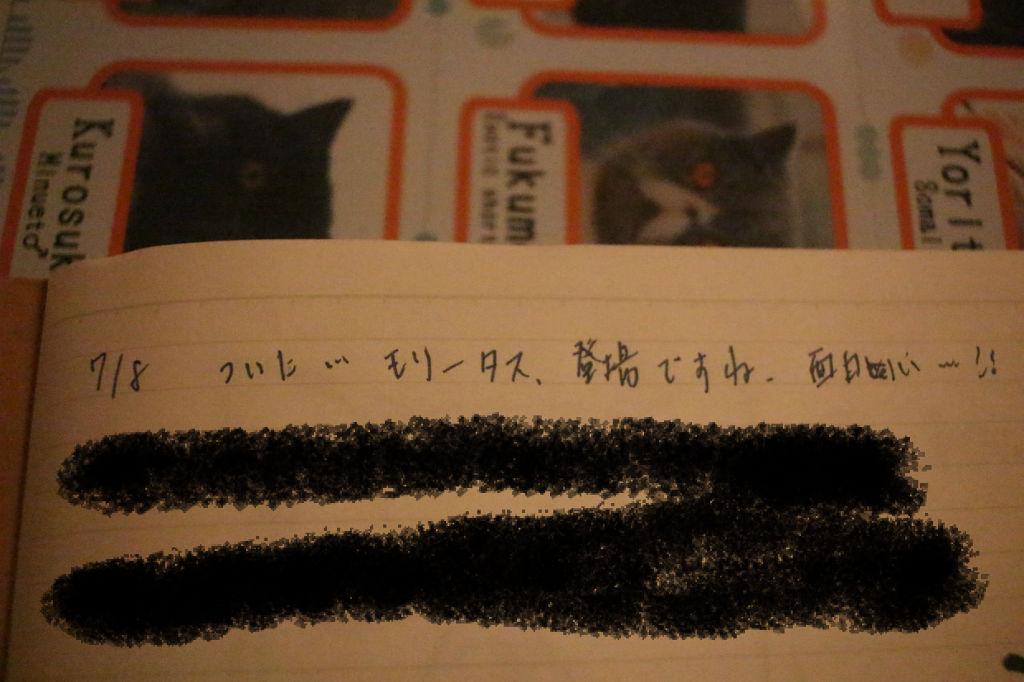 Kurosuk
Minueto♂
Fukum
Exotic short
Yorit
Somal
7/8 ついに… モリータス、登場ですね. 面白い…!!